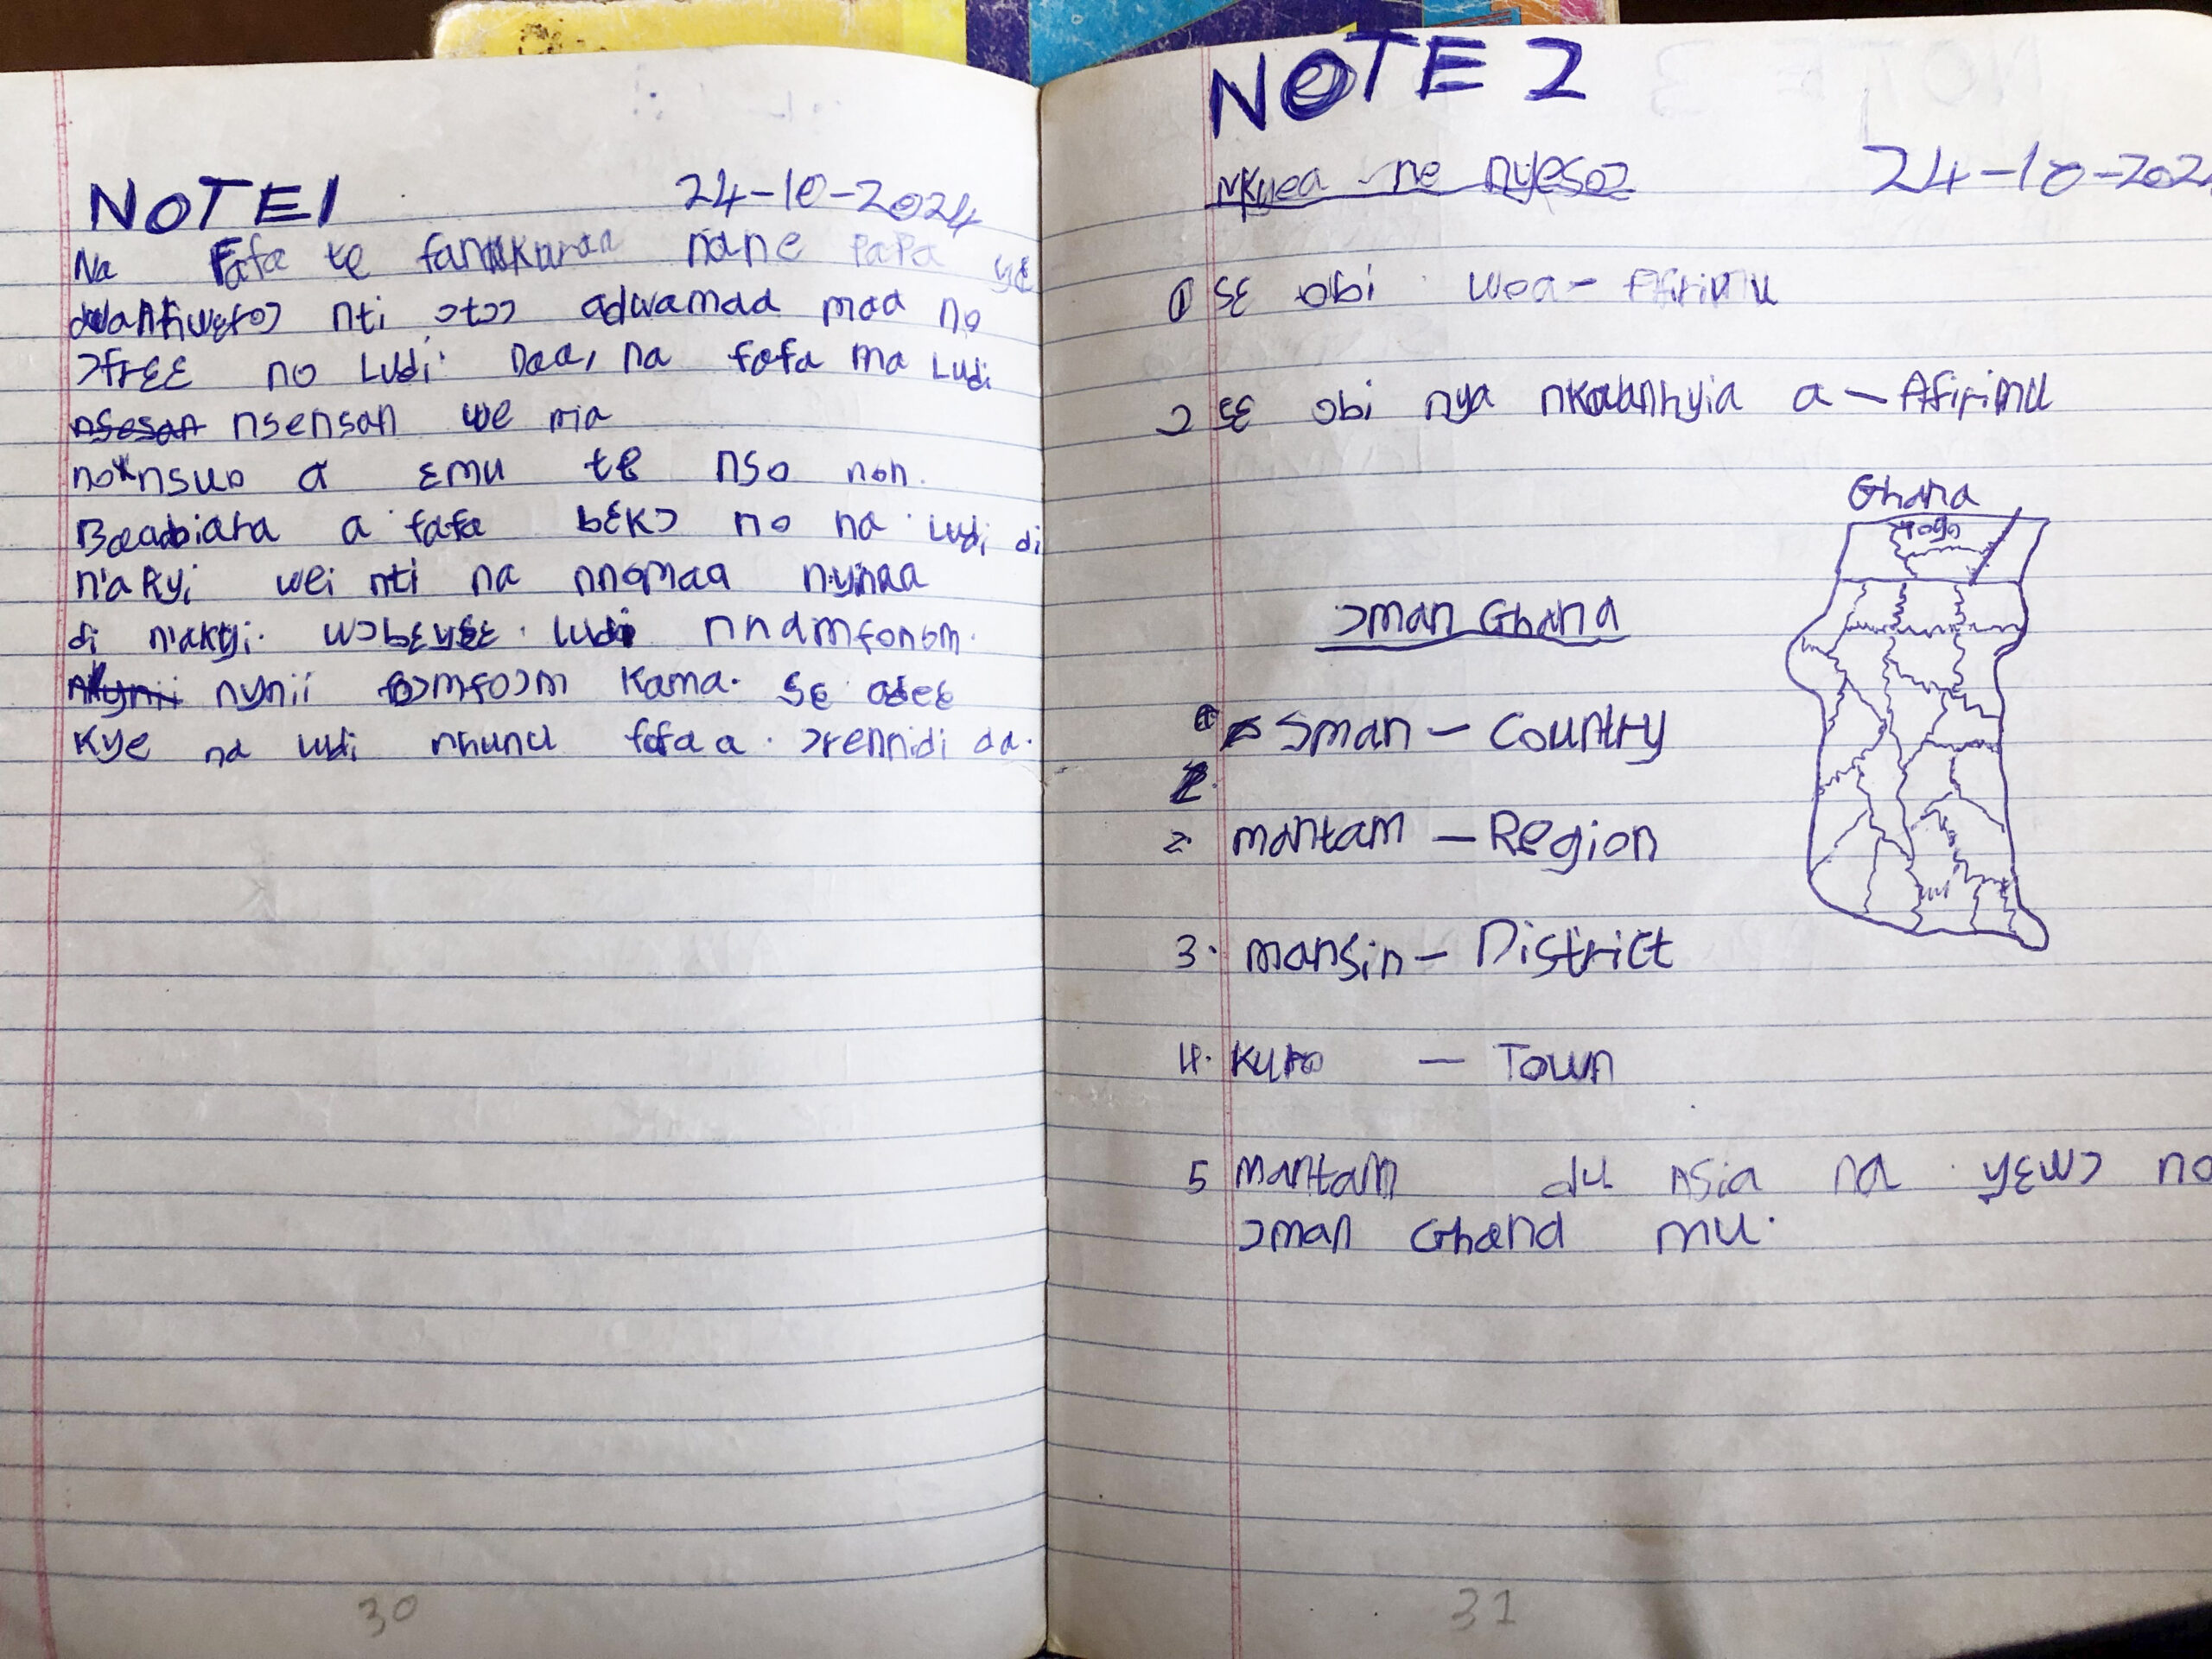 NOTE 1 24-10-2024
Na Fafa te nane papa yɛ
nti ɔtɔɔ adwamaa maa no
ɔfrɛɛ no Ludi. Daa, na fafa ma Ludi
nsesan nsensan we ma
no nsuo a ɛmu te nso non.
Baabiara a fafa bɛkɔ no na Ludi di
n'akyi wei nti na nnomaa nyinaa
di n'akyi. wɔbɛyɛɛ Ludi nnamfonom.
nynii kama. Sɛ adeɛ
kye na Ludi nhunu fafa a. ɔrennidi da.
30
NOTE 2
Nkyea ne nyesoɔ 24-10-202
① Sɛ obi woa - Afirimu
2 Sɛ ɔbi nya nkabanhyia a - Afirimu
Ghana
Togo
Ɔman Ghana
Ɔman - Country
2. mantam - Region
3. mansin - District
4. Kuro - Town
5 Mantam du Asia na yɛwɔ no
ɔman Ghana mu.
31